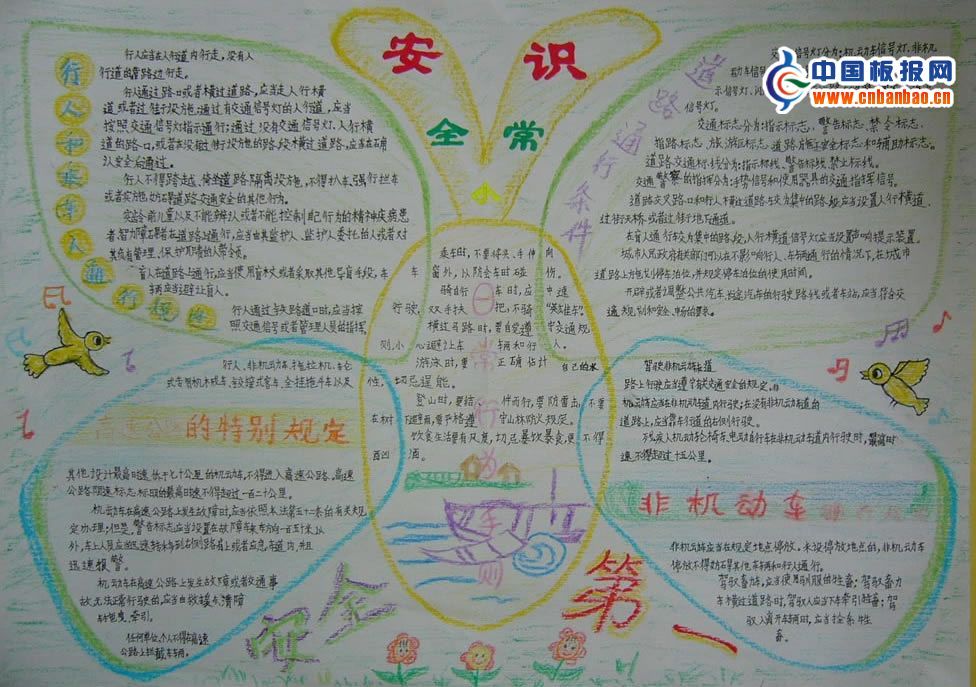 安全小常识
中国板报网
www.cnbanbao.cn
行人和乘车人通行规定
行人应当在人行道内行走,没有人
行道的靠路边行走。
行人通过路口或者横过道路,应当走人行横
道或者过街设施;通过有交通信号灯的人行道,应当
按照交通信号灯指示通行;通过没有交通信号灯、人行横
道的路口,或者在没有过街设施的路段横过道路,应当在确
认安全后通过。
行人不得跨越、倚坐道路隔离设施,不得扒车、强行拦车
或者实施妨碍道路交通安全的其他行为。
学龄前儿童以及不能辨认或者不能控制自己行为的精神疾病患
者、智力障碍者在道路上通行,应当由其监护人、监护人委托的人或者对
其负有管理、保护职责的人带领。
盲人在道路上通行,应当使用盲杖或者采取其他导盲手段,车
辆应当避让盲人。
行人通过铁路道口时,应当按
照交通信号或者管理人员的指挥
道路通行条件
交通信号灯分为:机动车信号灯、非机
动车信号灯
信号灯。
交通标志分为:指示标志、警告标志、禁令标志、
指路标志、旅游区标志、道路施工安全标志和辅助标志。
道路交通标线分为:指示标线、警告标线、禁止标线。
交通警察的指挥分为:手势信号和使用器具的交通指挥信号。
道路交叉路口和行人横过道路较为集中的路段应当设置人行横道、
过街天桥或者过街地下通道。
在盲人通行较为集中的路段,人行横道信号灯应当设置声响提示装置。
城市人民政府有关部门可以在不影响行人、车辆通行的情况下,在城市
道路上施划停车泊位,并规定停车泊位的使用时间。
开辟或者调整公共汽车、长途汽车的行驶路线或者车站,应当符合交
通规划和安全、畅通的要求。
日常行为手则
乘车时,不要将头、手伸向
车窗外,以防会车时碰伤。
骑自行车时,应中速
行驶,双手扶把,不骑"英雄车"。
横过马路时,要自觉遵守交通规
则,小心避让车辆和行人。
游泳时,要正确估计自己的水
性,切忌逞能。
登山时,要结伴而行,要防雷击,不要
在树下避雨,要严格遵守山林防火规定。
饮食生活要有风度,切忌暴饮暴食,更不得
酗酒。
行人、非机动车、拖拉机、轮式
式专用机械车、铰接式客车、全挂拖斗车以及
高速公路的特别规定
其他设计最高时速低于七十公里的机动车,不得进入高速公路。高速
公路限速标志标明的最高时速不得超过一百二十公里。
机动车在高速公路上发生故障时,应当依照本法第五十二条的有关规
定办理;但是,警告标志应当设置在故障车来车方向一百五十米以
外,车上人员应当迅速转移到右侧路肩上或者应急车道内,并且
迅速报警。
机动车在高速公路上发生故障或者交通事
故,无法正常行驶的,应当由救援车、清障
车拖曳、牵引。
任何单位、个人不得在高速
公路上拦截车辆。
驾驶非机动车在道
路上行驶应当遵守有关交通安全的规定。非
机动车应当在非机动车道内行驶;在没有非机动车道的
道路上,应当靠车行道的右侧行驶。
残疾人机动轮椅车、电动自行车在非机动车道内行驶时,最高时
速不得超过十五公里。
非机动车
非机动车应当在规定地点停放。未设停放地点的,非机动车
停放不得妨碍其他车辆和行人通行。
驾驭畜力车,应当使用驯服的牲畜;驾驭畜力
车横过道路时,驾驭人应当下车牵引牲畜;驾
驭人离开车辆时,应当拴系牲
畜。
安全第一